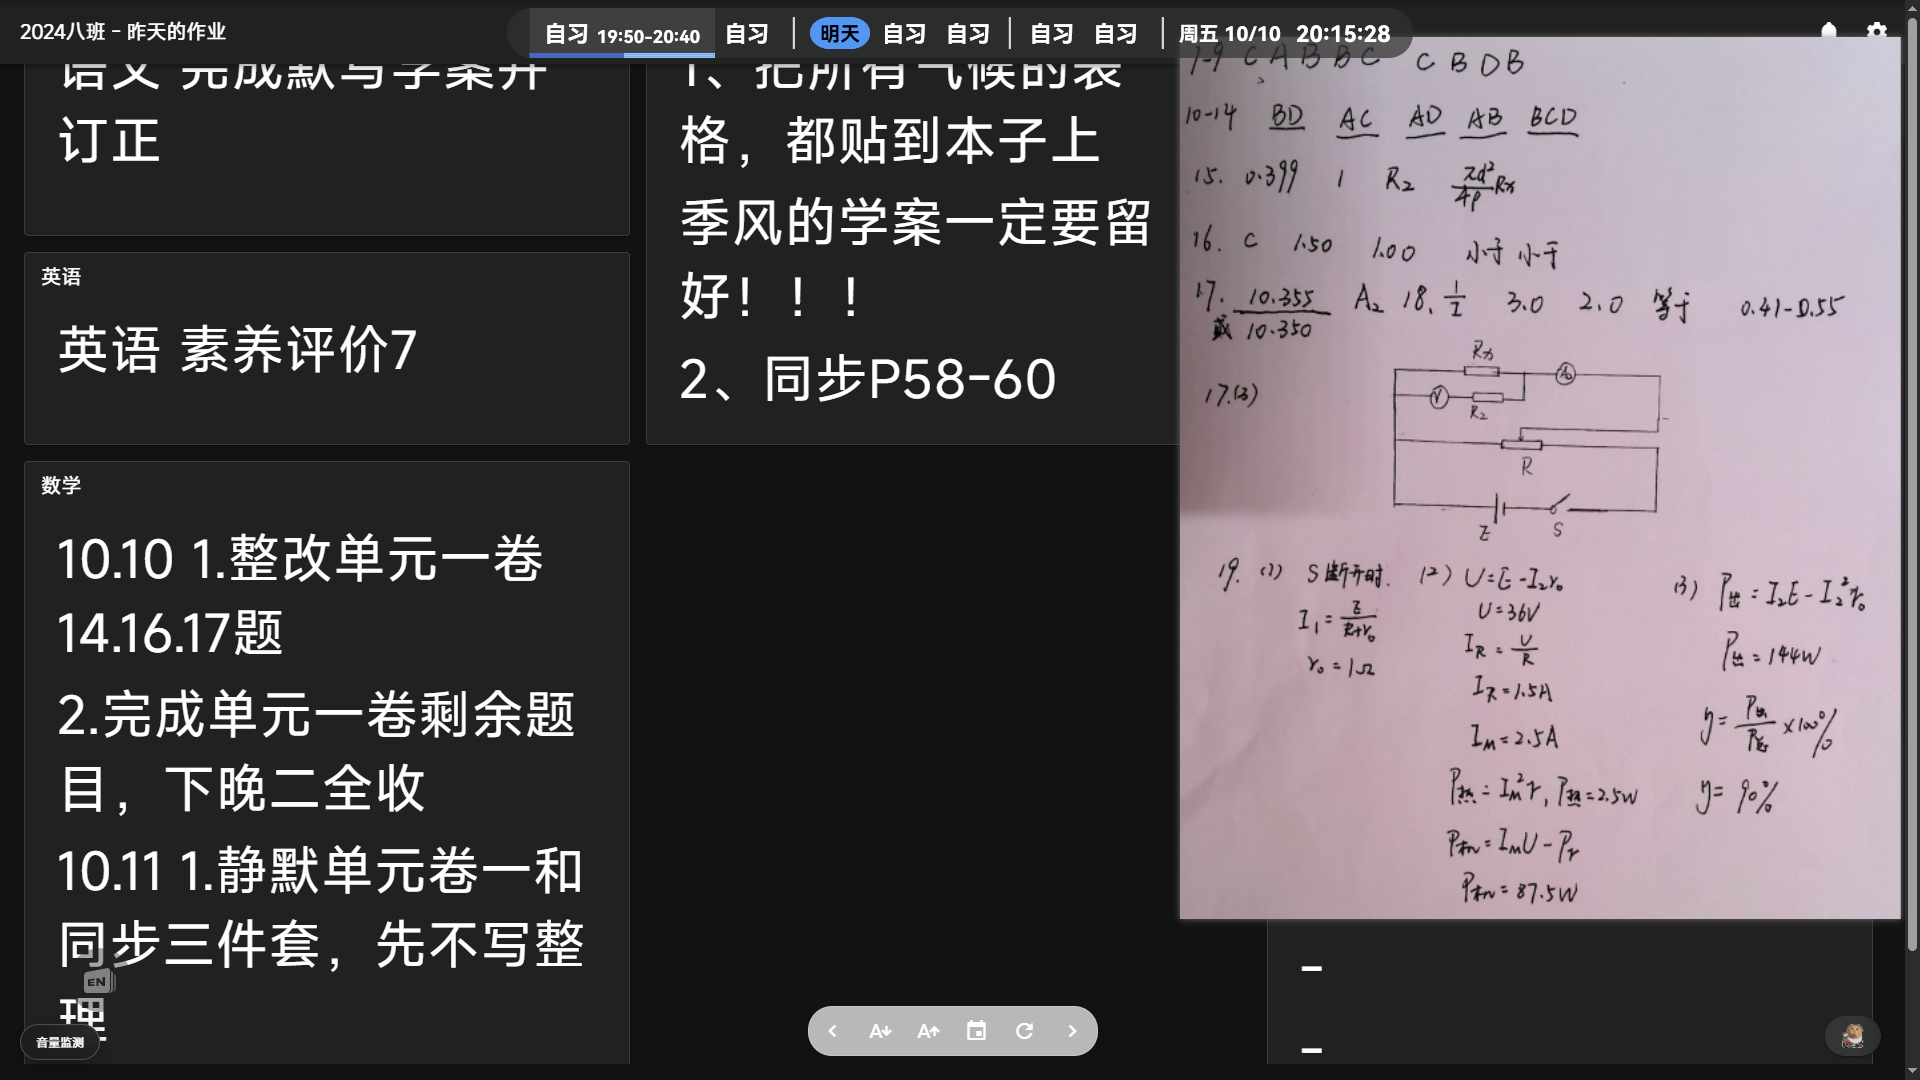 2024八班 - 昨天的作业
自习 19:50-20:40 自习 明天 自习 自习 自习 自习 周五 10/10 20:15:28
语文 完成默写学案并
订正
英语
英语 素养评价7
数学
10.10 1.整改单元一卷
14.16.17题
2.完成单元一卷剩余题
目，下晚二全收
10.11 1.静默单元卷一和
同步三件套，先不写整
理
EN
音量监测
1、把所有气候的表
格，都贴到本子上
季风的学案一定要留
好！！！
2、同步P58-60
1-9 C A B B C C B D B
10-14 BD AC AD AB BCD
15. 0.399 1 R₂ πd²/4ρ Rx
16. C 1.50 1.00 小于 小于
17. 10.355 A₂ 18. 1/I 3.0 2.0 等于 0.41-0.55
或 10.350
17.(3)
Rx
A₀
V
R₂
R
E S
19. (1) S断开时.
I₁ = E/(R+r₀)
r₀ = 1Ω
(2) U=E-I₂r₀
U=36V
I_R = U/R
I_R = 1.5A
I_M = 2.5A
P热 = I_M²r, P热=2.5W
P机 = I_MU - Pr
P机 = 87.5W
(3) P出 = I₂E - I₂²r₀
P出 = 144W
η = P出/P总 ×100%
η = 90%